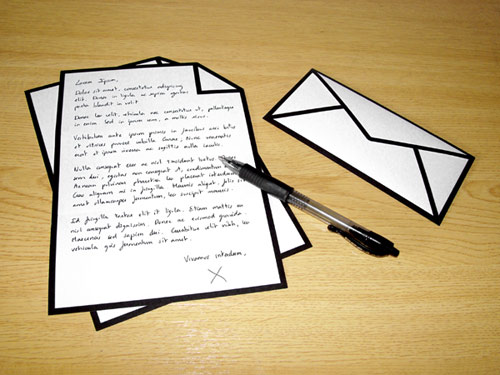 Lorem Ipsum,
Dolor sit amet, consectetur adipiscing
elit. Donec in ligula ac sapien egestas
porta blandit in velit.
Donec leo velit, vehicula non consectetur ut, pellentesque
in enim. Sed in ipsum sem, a mattis risus.
Vestibulum ante ipsum primis in faucibus orci luctus
et ultrices posuere cubilia Curae; Nunc venenatis
erat et ipsum accumsan ac sagittis nulla iaculis.
Nulla consequat eros ac nisl tincidunt luctus
orci dui, egestas non consequat ut, condimentum
Aenean pulvinar pharetra leo placerat interdum.
Cras aliquam mi in fringilla. Mauris aliquet, felis sit
amet ullamcorper fermentum, leo suscipit mauris.
Id fringilla tortor elit et ligula. Etiam mattis ac
nisl consequat dignissim. Donec ac euismod gravida.
Maecenas sed sapien dui. Curabitur elit nibh, leo
vehicula quis fermentum sit amet.
Vivamus interdum,
X